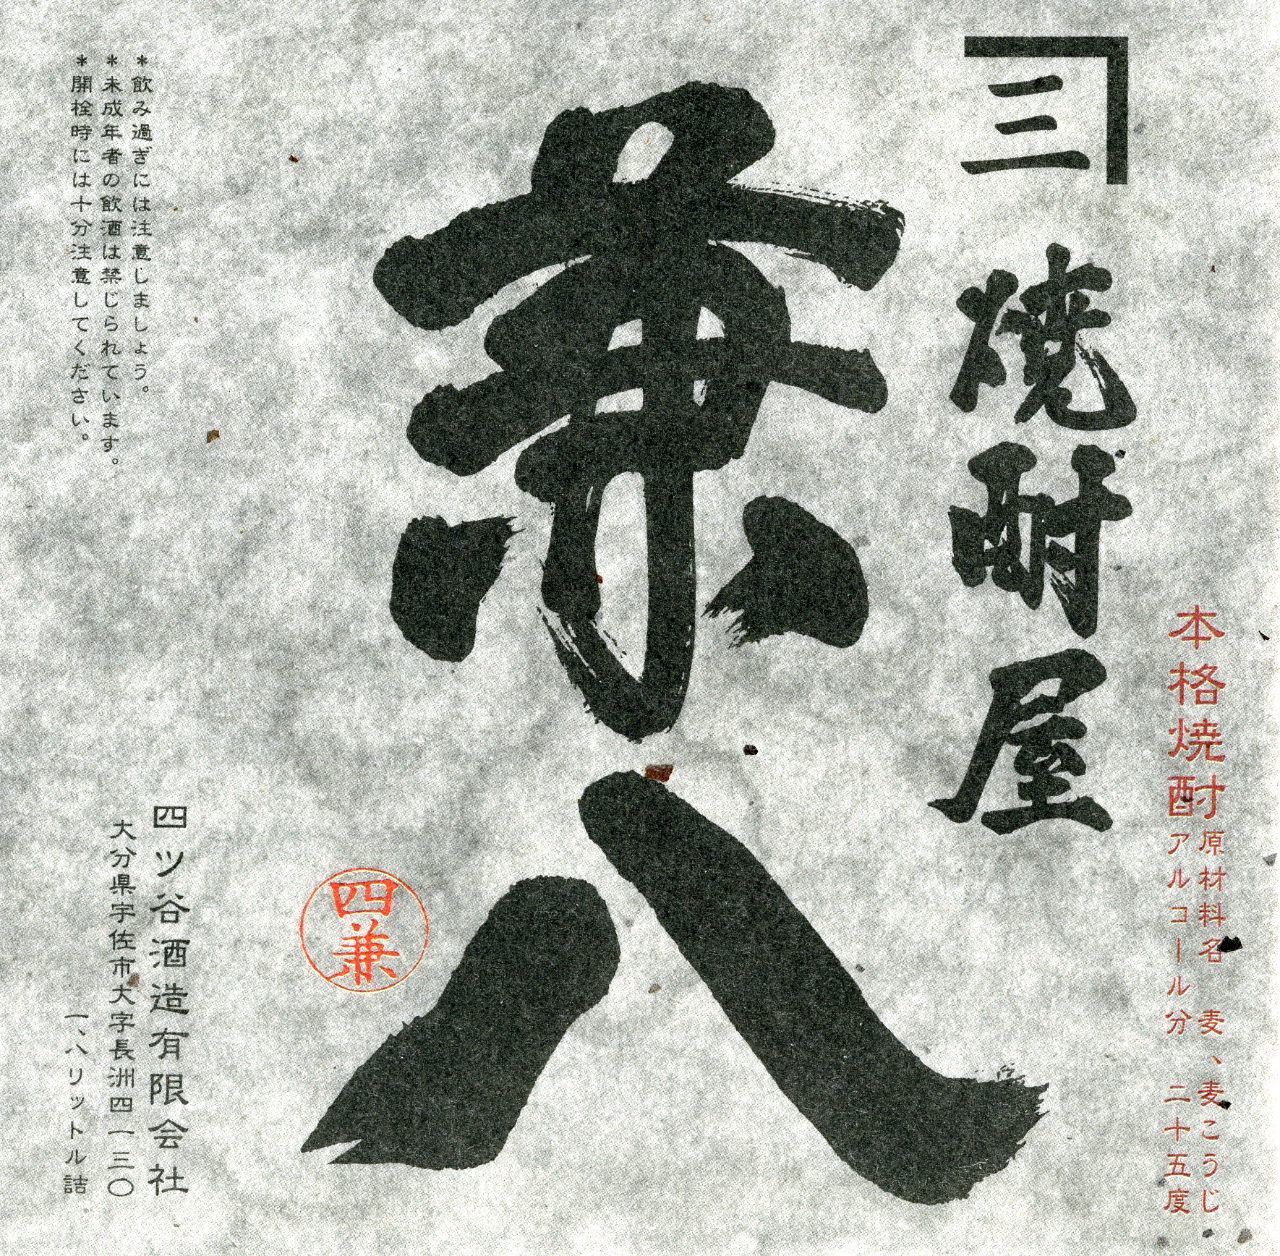 本格焼酎
原材料名 麦、麦こうじ
アルコール分 二十五度
三
焼酎屋
兼八
四兼
＊飲み過ぎには注意しましょう。
＊未成年者の飲酒は禁じられています。
＊開栓時には十分注意してください。
四ツ谷酒造有限会社
大分県宇佐市大字長洲四一三〇
一、八リットル詰